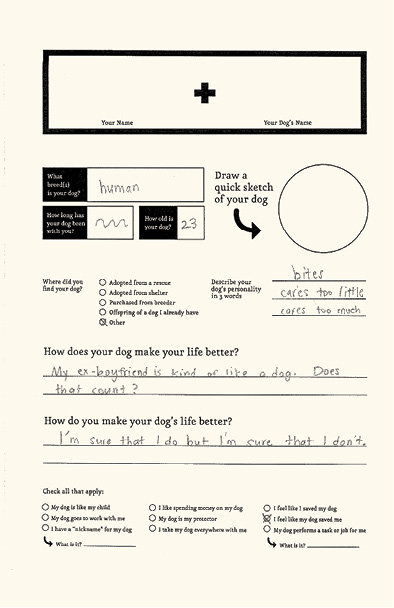 Your Name
Your Dog's Name
What
breed(s)
is your dog?
human
How long has
your dog been
with you?
How old is
your dog?
23
Draw a
quick sketch
of your dog
Where did you
find your dog?
Adopted from a rescue
Adopted from shelter
Purchased from breeder
Offspring of a dog I already have
Other
Describe your
dog's personality
in 3 words
bites
cares too little
cares too much
How does your dog make your life better?
My ex-boyfriend is kind of like a dog. Does
that count?
How do you make your dog's life better?
I'm sure that I do but I'm sure that I don't.
Check all that apply:
My dog is like my child
My dog goes to work with me
I have a "nickname" for my dog
What is it?
I like spending money on my dog
My dog is my protector
I take my dog everywhere with me
I feel like I saved my dog
I feel like my dog saved me
My dog performs a task or job for me
What is it?